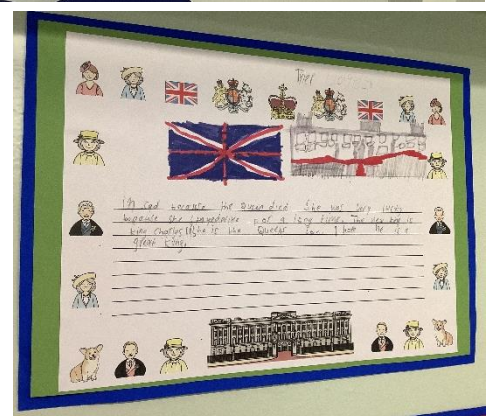 Im Sad because the Queen died She was very lucky
because she
for a long time. The new king is
King Charles III he is the Queens Son I hope he is a
great King.